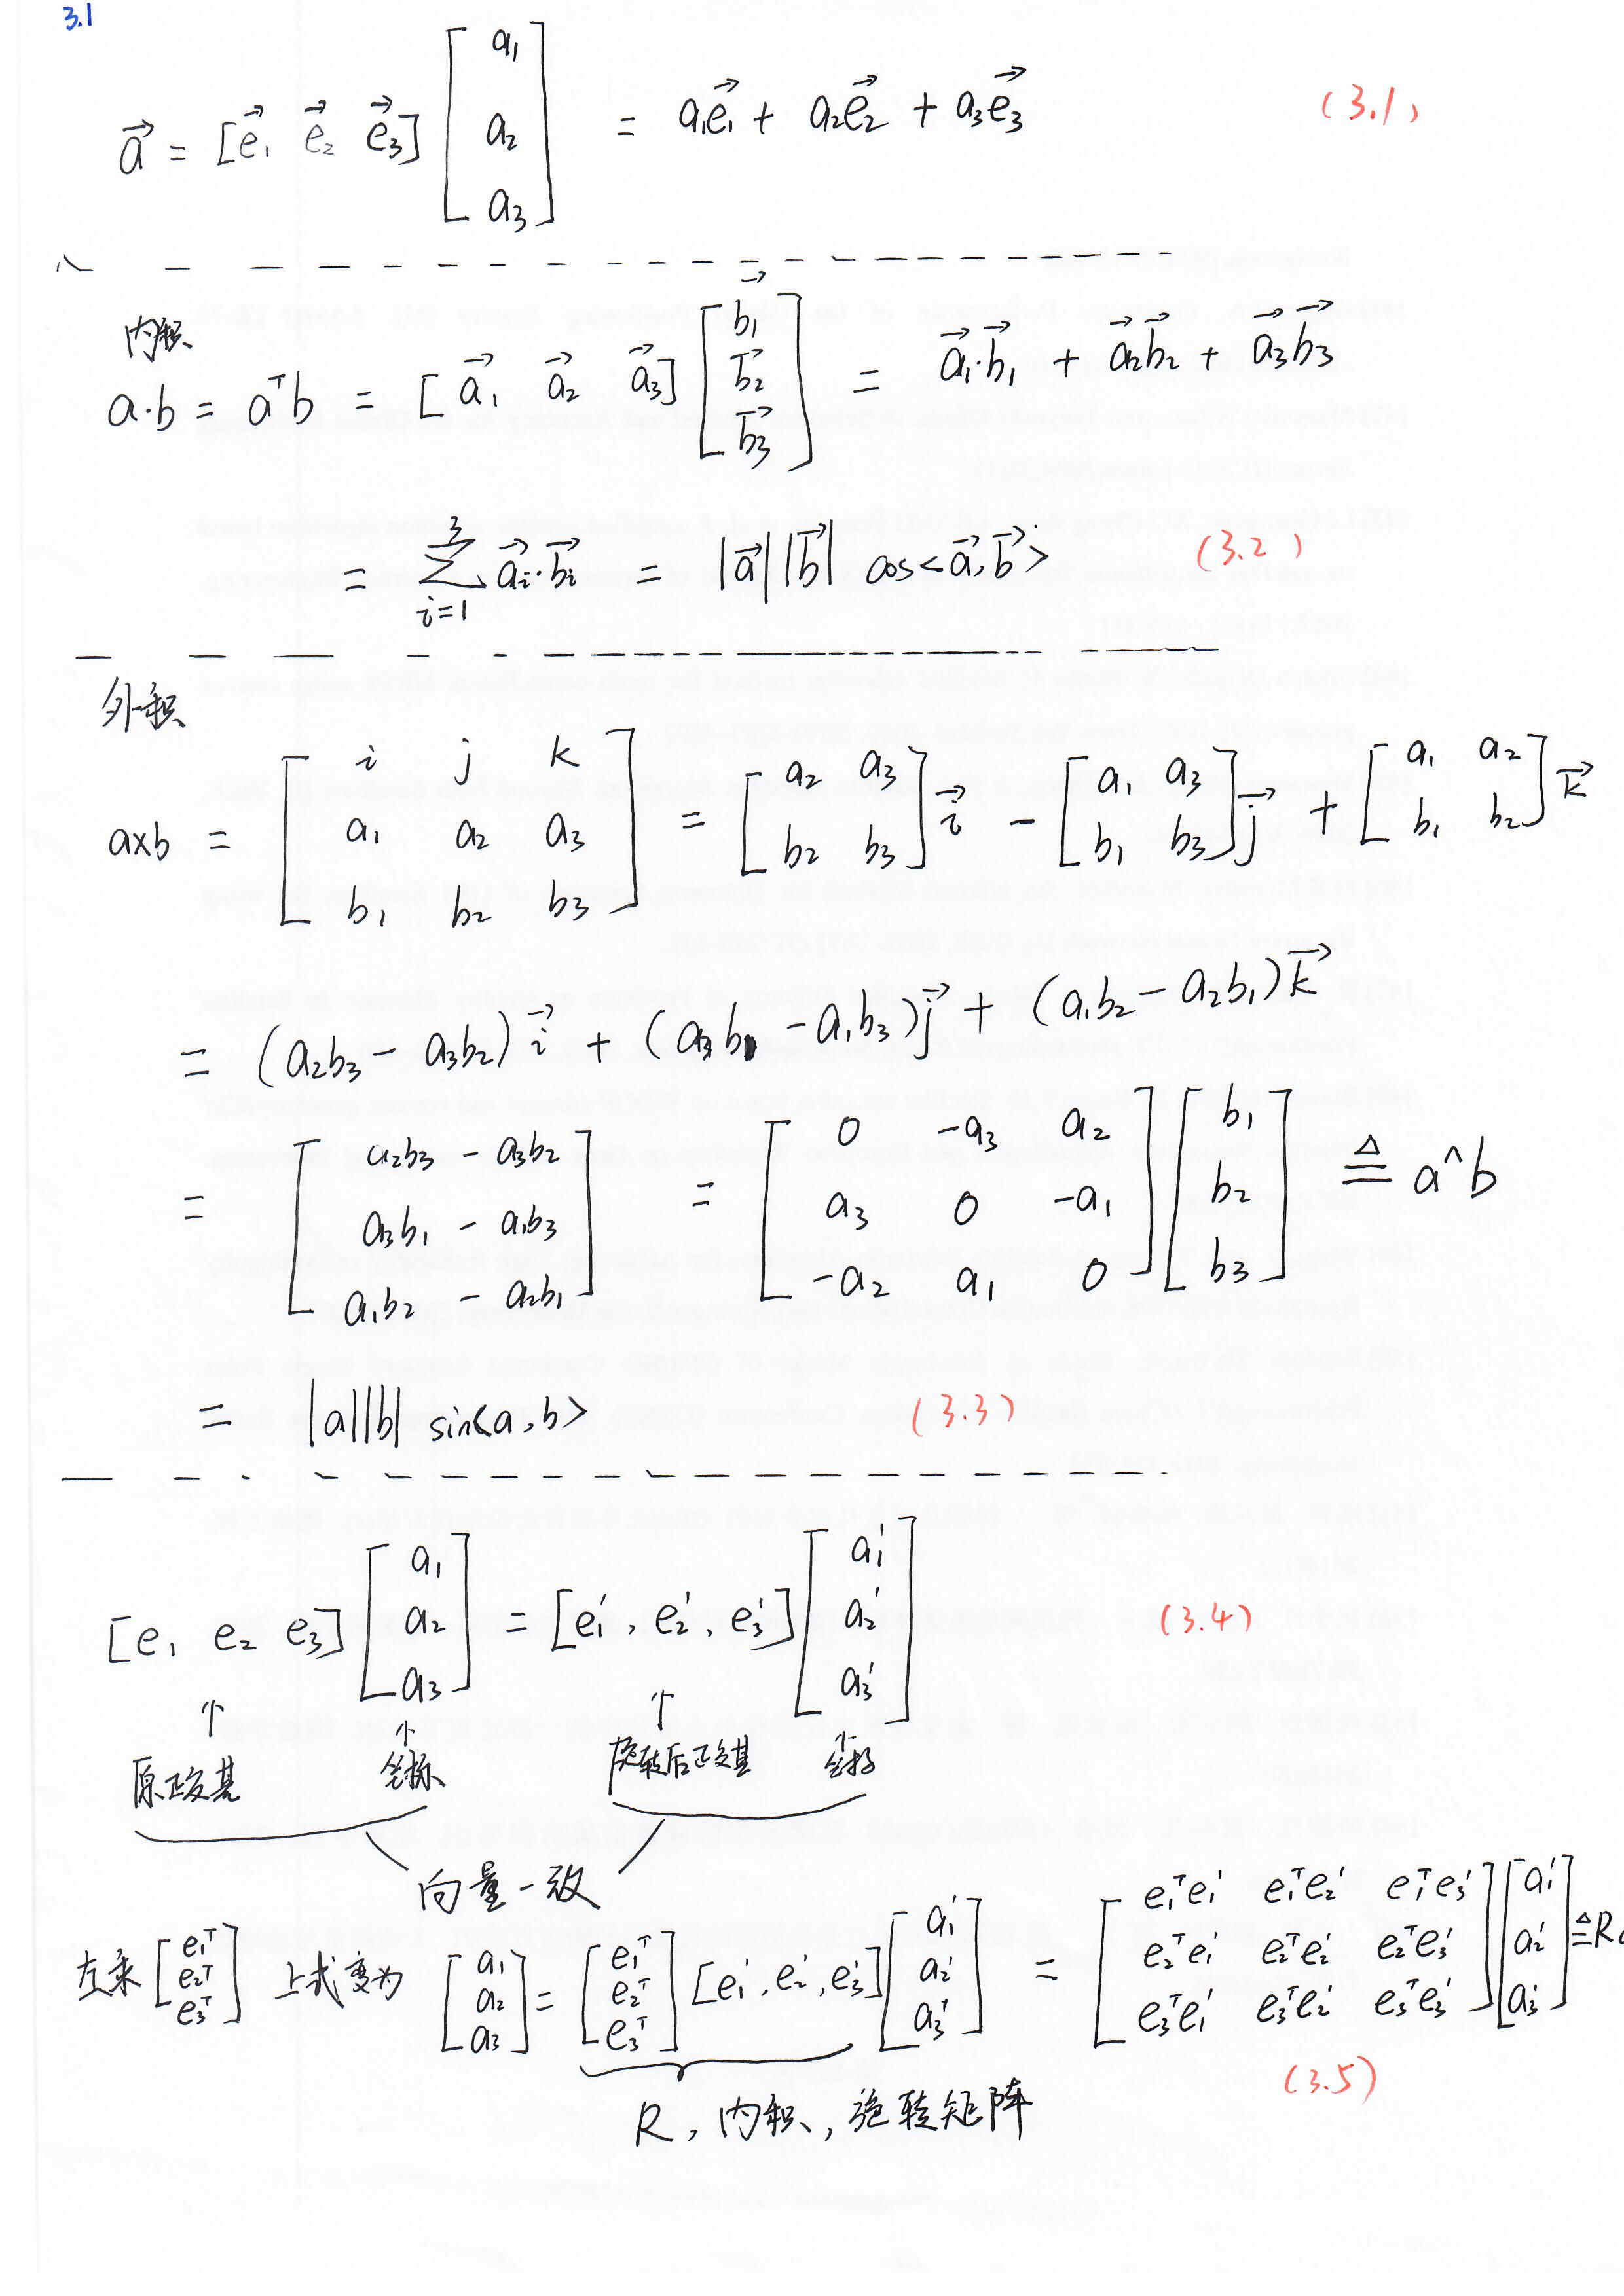 3.1
$\vec{a} = [\vec{e}_1 \ \vec{e}_2 \ \vec{e}_3] \begin{bmatrix} a_1 \\ a_2 \\ a_3 \end{bmatrix} = a_1\vec{e}_1 + a_2\vec{e}_2 + a_3\vec{e}_3$ (3.1)
内积
$a \cdot b = a^T b = [\vec{a}_1 \ \vec{a}_2 \ \vec{a}_3] \begin{bmatrix} \vec{b}_1 \\ \vec{b}_2 \\ \vec{b}_3 \end{bmatrix} = \vec{a}_1 \cdot \vec{b}_1 + \vec{a}_2 \vec{b}_2 + \vec{a}_3 \vec{b}_3$
$= \sum_{i=1}^{3} \vec{a}_i \cdot \vec{b}_i = |\vec{a}| |\vec{b}| \cos<\vec{a}, \vec{b}>$ (3.2)
外积
$a \times b = \begin{bmatrix} i & j & k \\ a_1 & a_2 & a_3 \\ b_1 & b_2 & b_3 \end{bmatrix} = \begin{bmatrix} a_2 & a_3 \\ b_2 & b_3 \end{bmatrix} \vec{i} - \begin{bmatrix} a_1 & a_3 \\ b_1 & b_3 \end{bmatrix} \vec{j} + \begin{bmatrix} a_1 & a_2 \\ b_1 & b_2 \end{bmatrix} \vec{k}$
$= (a_2b_3 - a_3b_2)\vec{i} + (a_3b_1 - a_1b_3)\vec{j} + (a_1b_2 - a_2b_1)\vec{k}$
$= \begin{bmatrix} a_2b_3 - a_3b_2 \\ a_3b_1 - a_1b_3 \\ a_1b_2 - a_2b_1 \end{bmatrix} = \begin{bmatrix} 0 & -a_3 & a_2 \\ a_3 & 0 & -a_1 \\ -a_2 & a_1 & 0 \end{bmatrix} \begin{bmatrix} b_1 \\ b_2 \\ b_3 \end{bmatrix} \triangleq a^\wedge b$
$= |a||b| \sin<a, b>$ (3.3)
$[e_1 \ e_2 \ e_3] \begin{bmatrix} a_1 \\ a_2 \\ a_3 \end{bmatrix} = [e_1', e_2', e_3'] \begin{bmatrix} a_1' \\ a_2' \\ a_3' \end{bmatrix}$ (3.4)
↑ ↑ ↑ ↑
原正交基 坐标 旋转后正交基 坐标
向量一致
左乘 $\begin{bmatrix} e_1^T \\ e_2^T \\ e_3^T \end{bmatrix}$ 上式变为 $\begin{bmatrix} a_1 \\ a_2 \\ a_3 \end{bmatrix} = \begin{bmatrix} e_1^T \\ e_2^T \\ e_3^T \end{bmatrix} [e_1', e_2', e_3'] \begin{bmatrix} a_1' \\ a_2' \\ a_3' \end{bmatrix} = \begin{bmatrix} e_1^Te_1' & e_1^Te_2' & e_1^Te_3' \\ e_2^Te_1' & e_2^Te_2' & e_2^Te_3' \\ e_3^Te_1' & e_3^Te_2' & e_3^Te_3' \end{bmatrix} \begin{bmatrix} a_1' \\ a_2' \\ a_3' \end{bmatrix} \triangleq R$
(3.5)
R, 内积, 旋转矩阵